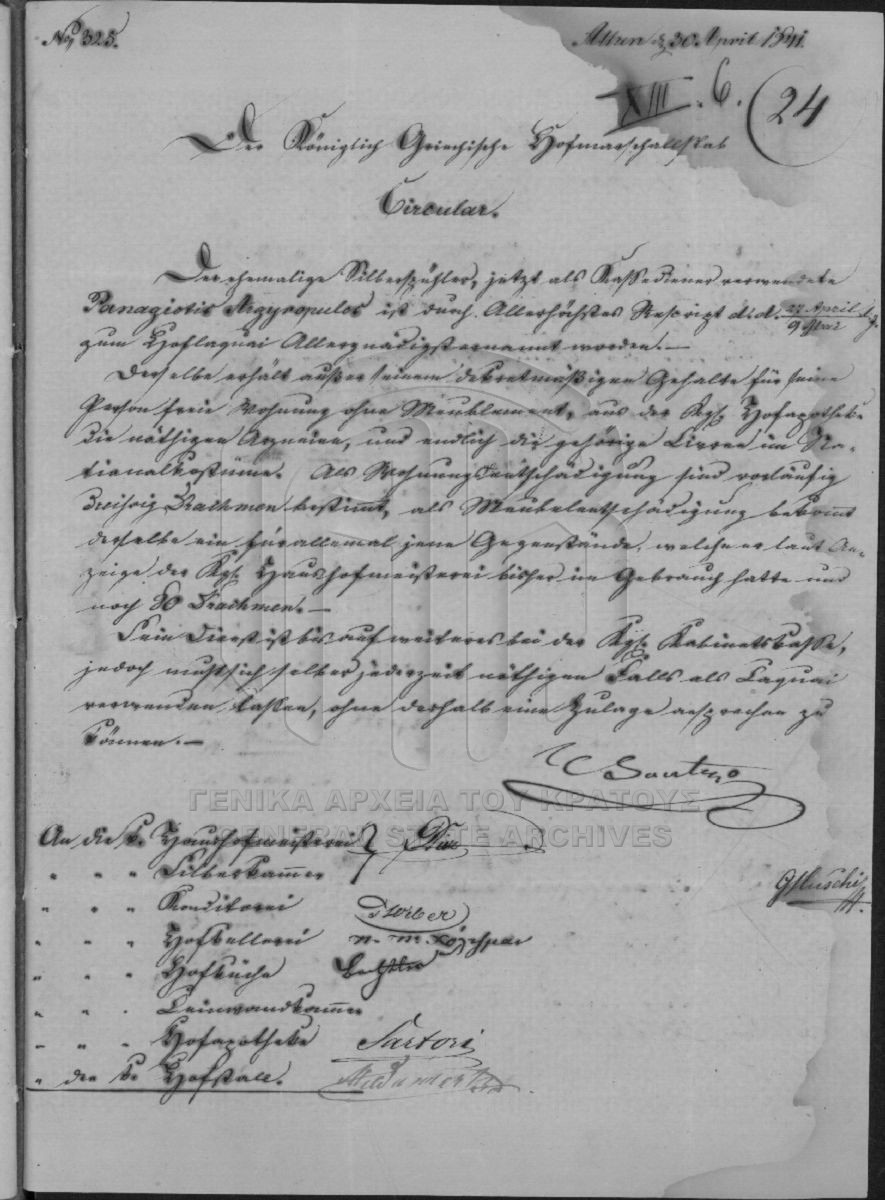 No 325.
Athen d. 30 April 1841.
XIII. 6. 24
Der Königlich Griechische Hofmarschallstab
Circular.
Der ehemalige Silberspühler, jetzt als Kassediener verwendete
Panagiotis Argyropulos ist durch Allerhöchstes Rescript d.d. 27 April / 9 Mai l. J.
zum Hoflaquai Allergnädigst ernannt worden. —
Derselbe erhält außer seinem dekretmäßigen Gehalte für seine
Person freie Wohnung ohne Meublement, aus der Kgl. Hofapotheke
die nöthigen Arzneien, und endlich die gehörige Livree im Na-
tionalkostüme. Als Wohnungsentschädigung sind vorläufig
dreißig Drachmen bestimmt, als Meubelentschädigung bekommt
derselbe ein für allemal jene Gegenstände, welche er laut An-
zeige der Kgl. Haushofmeisterei bisher im Gebrauch hatte und
noch 80 Drachmen. —
Sein Dienst ist bis auf weiteres bei der Kgl. Kabinetskasse,
jedoch muß sich selber jederzeit nöthigen Falls als Laquai
verwenden lassen, ohne deshalb eine Zulage ansprechen zu
können. —
ΓΕΝΙΚΑ ΑΡΧΕΙΑ ΤΟΥ ΚΡΑΤΟΥΣ
GENERAL STATE ARCHIVES
An die k. Haushofmeisterei
" " " Silberkammer
" " " Konditorei
" " " Hofkellerei
" " " Hofküche
" " " Leinwandkammer
" " " Hofapotheke Sartori
" den k. Hofstall.